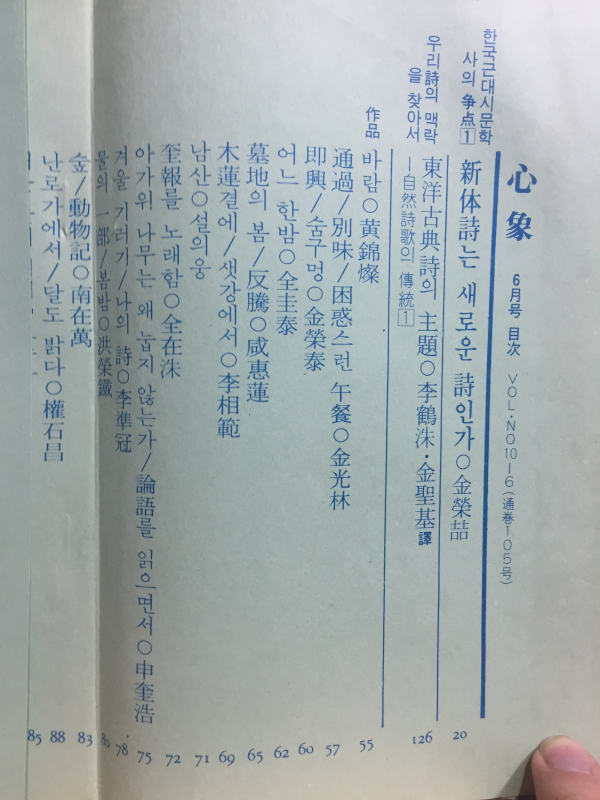 心象 6月号 目次 VOL·NO10-6(通巻105号)
한국근대시문학
사의 争点1
新体詩는 새로운 詩인가○金榮喆 20
우리詩의 맥락
을 찾아서
東洋古典詩의 主題○李鶴洙·金聖基 譯 126
─自然詩歌의 傳統1
作品
바람○黃錦燦 55
通過/別味/困惑스런 午餐○金光林 57
即興/숨구멍○金榮泰 60
어느 한밤○全圭泰 62
墓地의 봄/反騰○咸惠蓮 65
木蓮곁에/샛강에서○李相範 69
남산○설의웅 71
奎報를 노래함○全在洙 72
아가위 나무는 왜 눕지 않는가/論語를 읽으면서○申奎浩 75
겨울 기러기/나의 詩○李準冠 78
물의 一部/봄밤○洪榮鐵 80
숲/動物記○南在萬 83
난로가에서/달도 밝다○權石昌 88
85